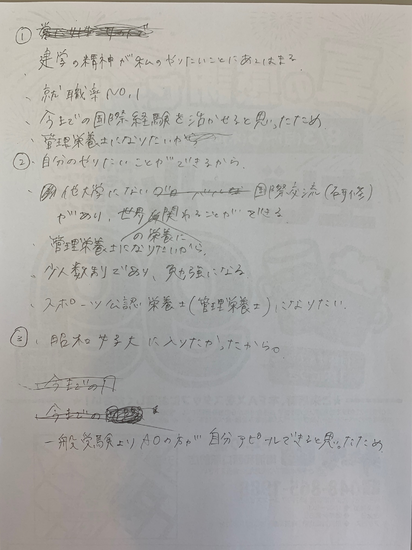 ①
建学の精神が私のやりたいことにあてはまる
・就職率NO.1
・今までの国際経験を活かせると思ったため
・管理栄養士になりたいから
② ・自分のやりたいことができるから
・他大学にない 国際交流(研修)
があり、世界の栄養に関わることができる
・管理栄養士になりたいから
・少人数制であり、勉強になる
・スポーツ公認栄養士(管理栄養士)になりたい
③ ・昭和女子大に入りたかったから。
今までの
今までの
一般受験よりAOの方が自分アピールできると思ったため